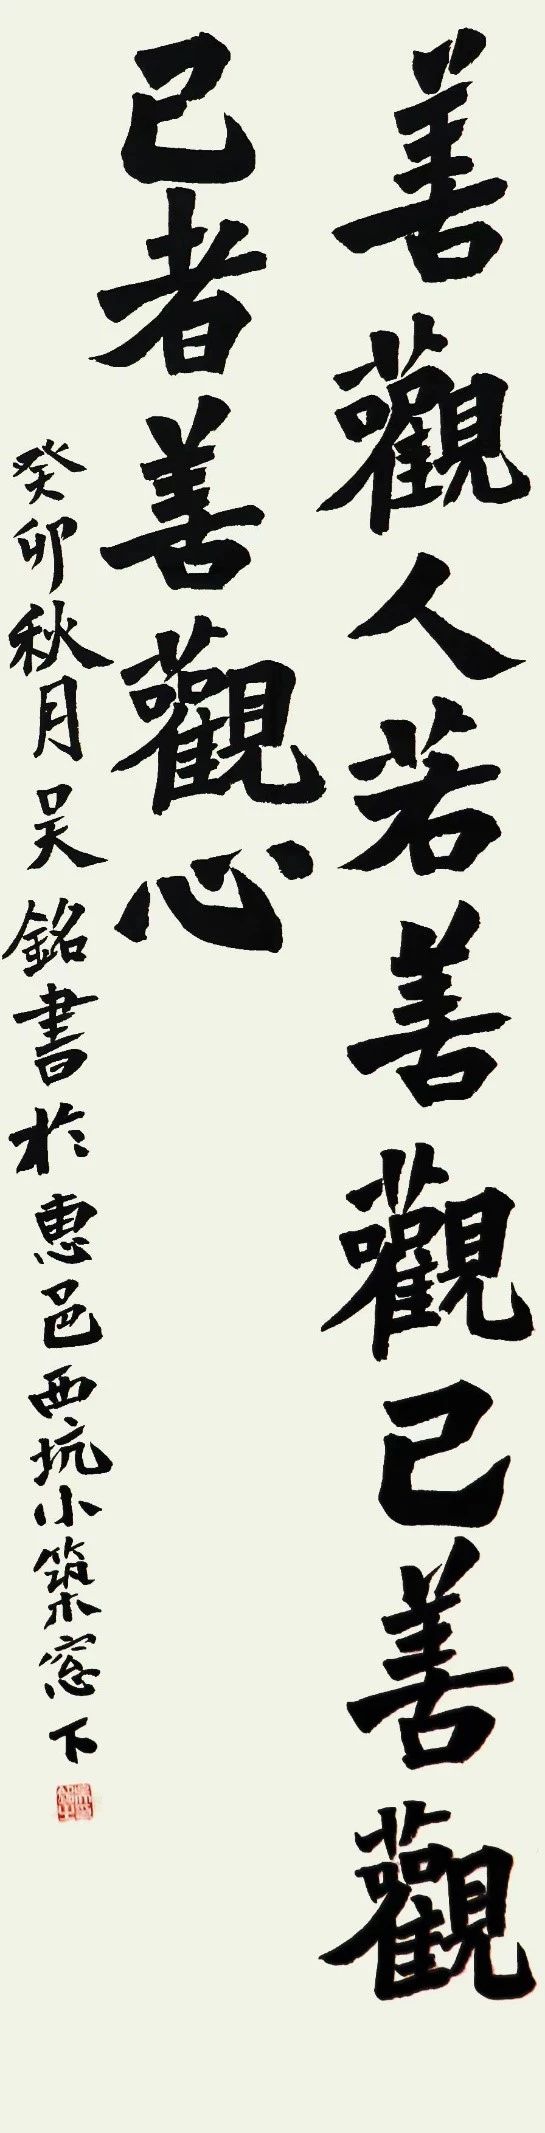 善觀人若善觀己善觀
己者善觀心
癸卯秋月吴銘書於惠邑西坑小築窓下